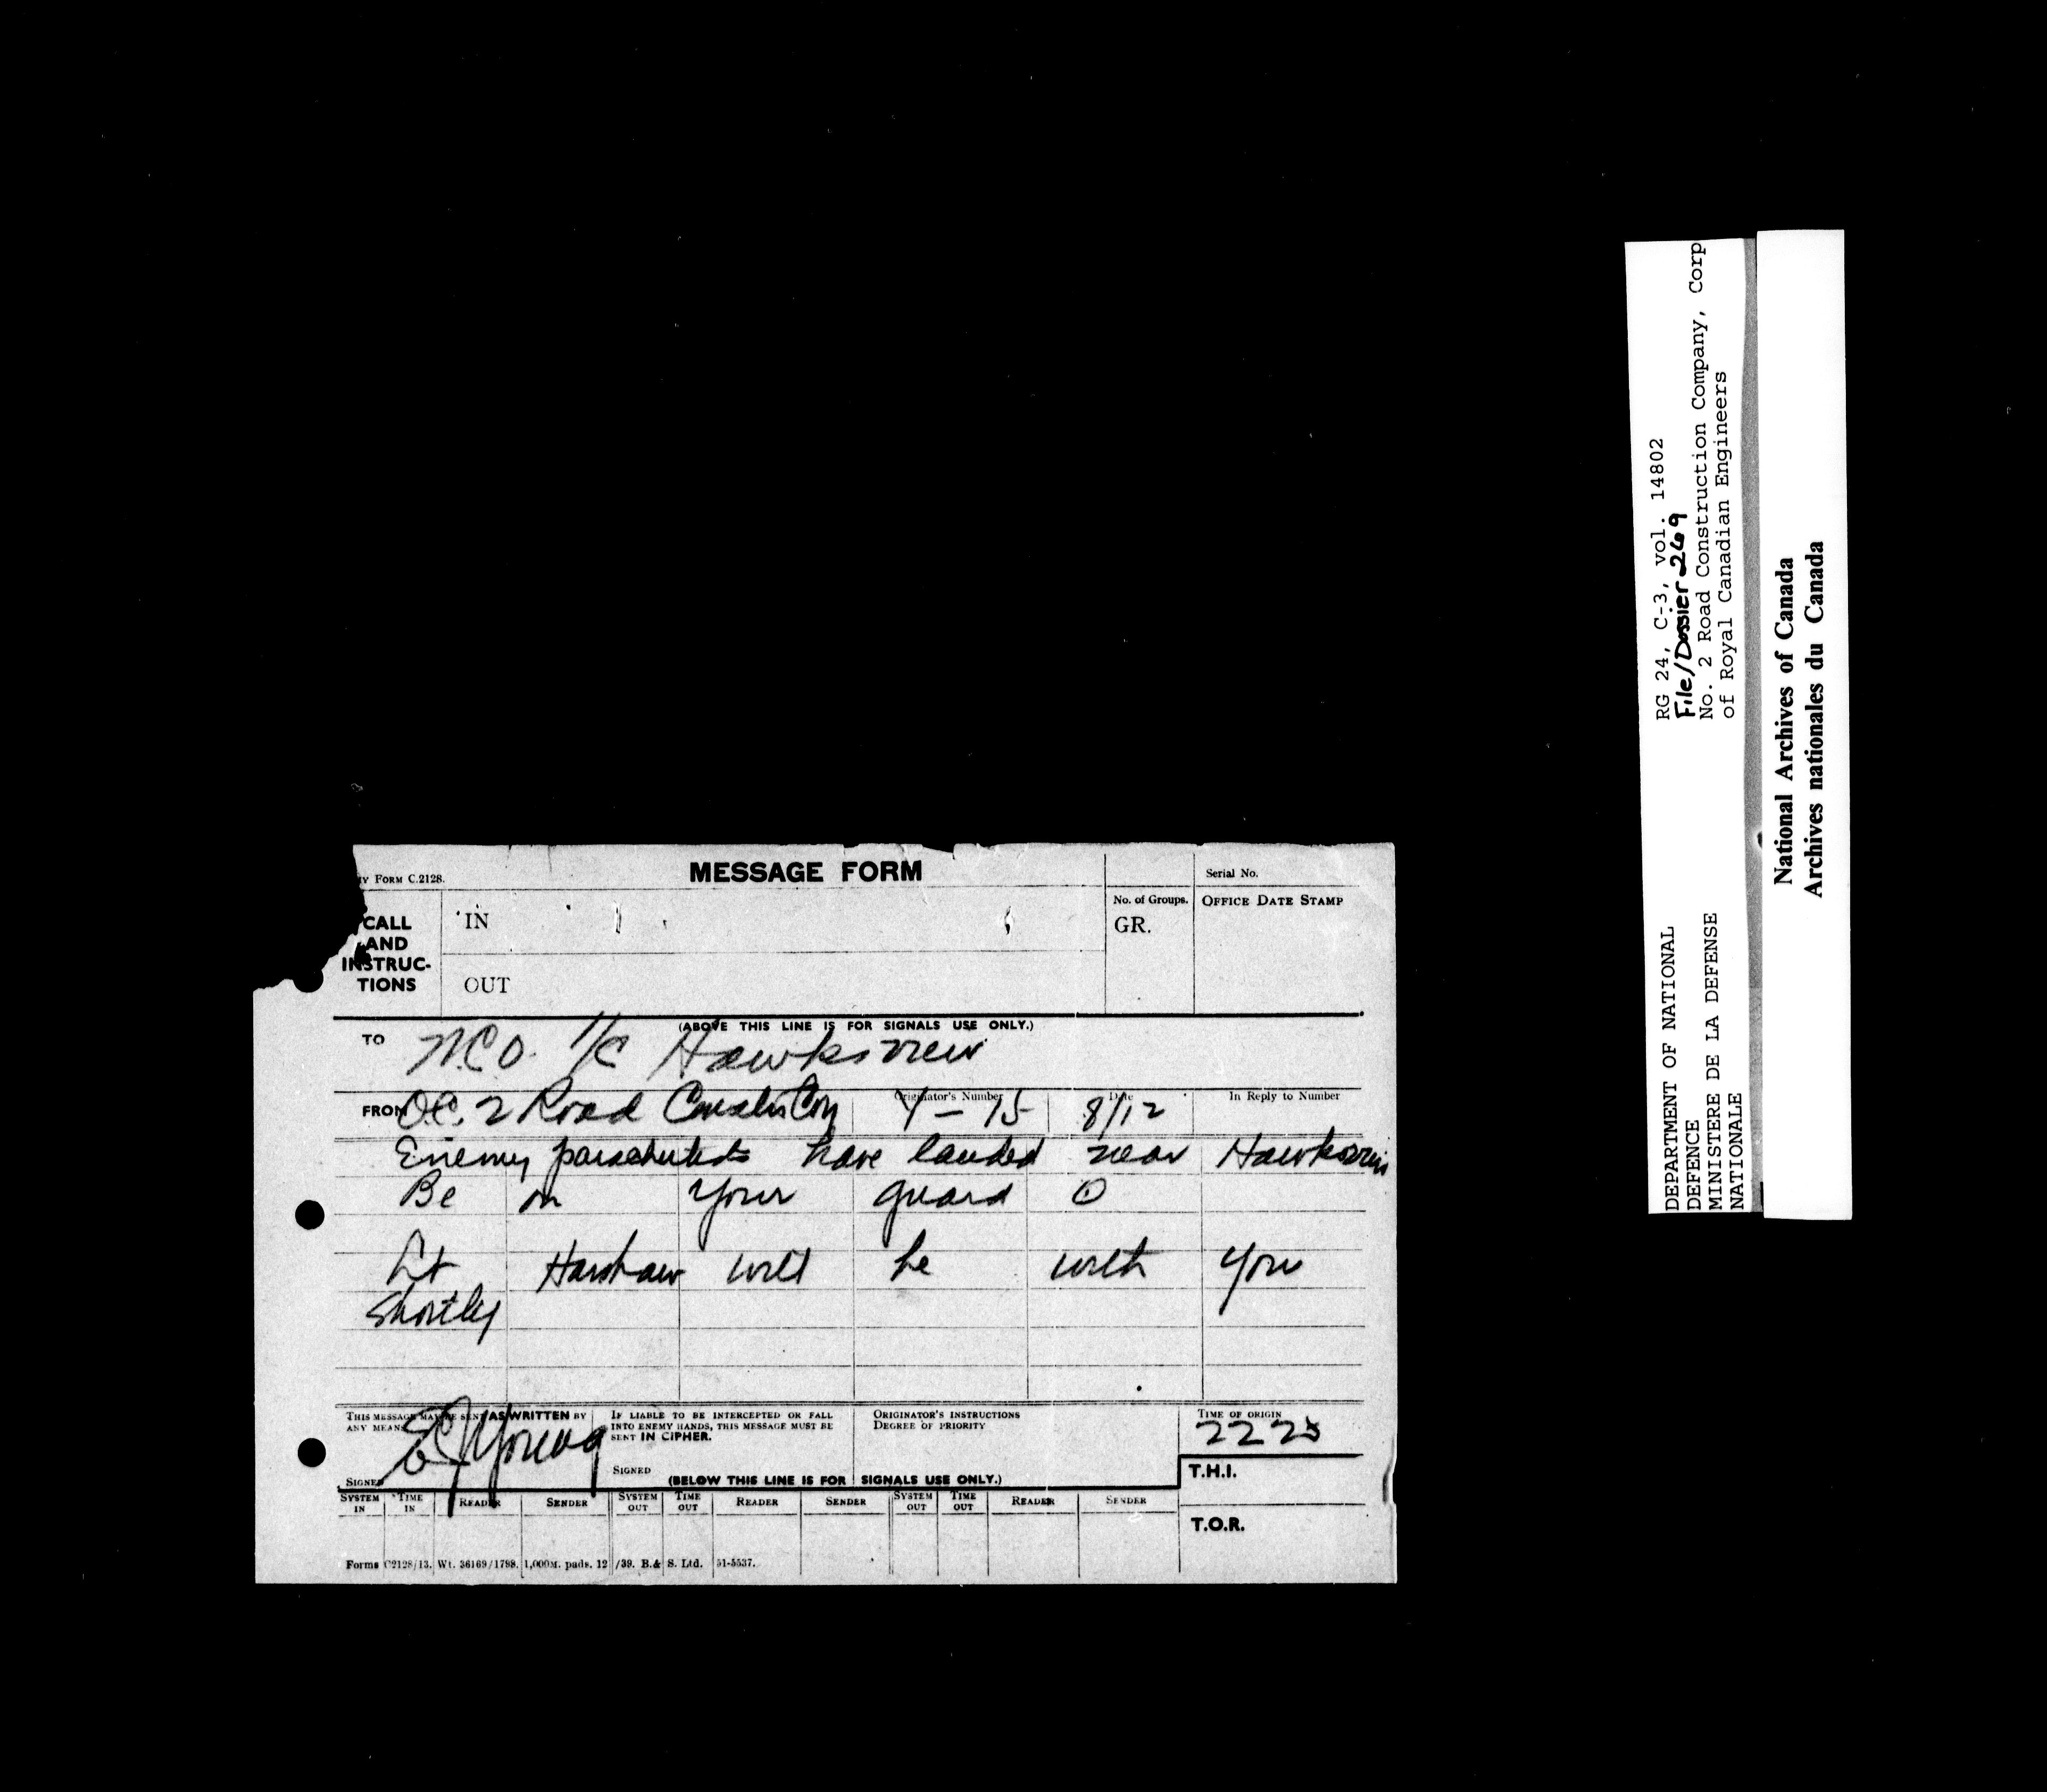 MESSAGE FORM
Y FORM C.2128.
Serial No.
CALL AND INSTRUC-TIONS
IN
OUT
No. of Groups.
GR.
OFFICE DATE STAMP
(ABOVE THIS LINE IS FOR SIGNALS USE ONLY.)
TO N.C.O. I/C Hawksview
FROM O.C. 2 Road Constn Coy Originator's Number Y-15 Date 8/12 In Reply to Number
Enemy parachutists have landed near Hawksview
Be on your guard O
Lt Harshaw will be with you
shortly
THIS MESSAGE MAY BE SENT AS WRITTEN BY ANY MEANS
SIGNED E C Young
IF LIABLE TO BE INTERCEPTED OR FALL INTO ENEMY HANDS, THIS MESSAGE MUST BE SENT IN CIPHER.
SIGNED
ORIGINATOR'S INSTRUCTIONS
DEGREE OF PRIORITY
TIME OF ORIGIN
2225
T.H.I.
T.O.R.
(BELOW THIS LINE IS FOR SIGNALS USE ONLY.)
SYSTEM IN TIME IN READER SENDER SYSTEM OUT TIME OUT READER SENDER SYSTEM OUT TIME OUT READER SENDER
Forms C2128/13. Wt. 36169/1798. 1,000M. pads. 12/39. B.& S. Ltd. 51-5537.
DEPARTMENT OF NATIONAL
DEFENCE
MINISTERE DE LA DEFENSE
NATIONALE
RG 24, C-3, vol. 14802
File/Dossier 269
No. 2 Road Construction Company, Corp
of Royal Canadian Engineers
National Archives of Canada
Archives nationales du Canada